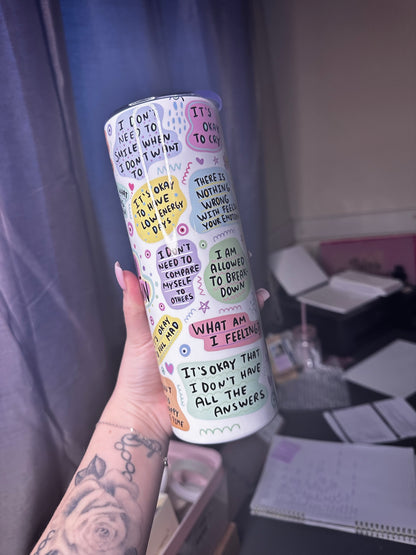 I DON'T
NEED TO
SMILE WHEN
I DON'T WANT
TO
IT'S
OKAY
TO CRY
IT'S OKAY
TO HAVE
LOW ENERGY
DAYS
THERE IS
NOTHING
WRONG
WITH FEELING
YOUR EMOTIONS
I DON'T
NEED TO
COMPARE
MYSELF
TO
OTHERS
I AM
ALLOWED
TO BREAK
DOWN
OKAY
MAD
WHAT AM
I FEELING?
IT'S OKAY THAT
I DON'T HAVE
ALL THE
ANSWERS
TIME